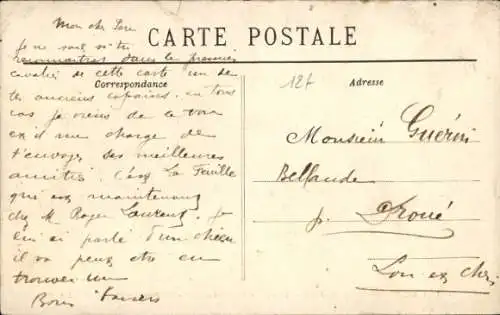 CARTE POSTALE
Correspondance
Mon cher
Je ne sais si tu
reconnaitras dans le premier
cavalier de cette carte un de
tes anciens copains. en tous
cas je viens de le voir
et il me charge de
t'envoyer ses meilleures
amitiés. C'est La Feuille
qui est maintenant
chez M. Roger Laurent. Je
lui ai parlé d'un chien
il va peut etre en
trouver un
Bons
Adresse
Monsieur Guérin
Bellande
p. Droué
Loir et Cher